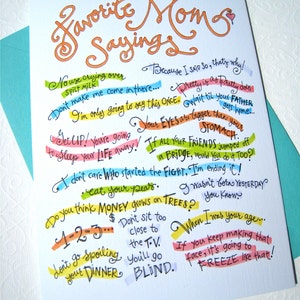 Favorite Mom
Sayings
No use crying over
spilt milk.
"Because I said so, that's why!"
Don't make me come in there...
Pretty is as Pretty does.
I'm only going to say this once.
Wait til your FATHER
gets home!
Your EYES are bigger than your
STOMACH.
Get UP! You're going
to sleep your LIFE away!
If ALL your FRIENDS jumped off
a BRIDGE, would you do it too?
I don't care WHO started the FIGHT. I'm ending it!
eat your peas.
I wasn't born YESTERDAY
you know.
Do you think MONEY grows on TREES?
1-2-3...
Don't sit too
close to
the T.V.
You'll go
BLIND.
When I was your age...
Don't go spoiling
your DINNER
If you keep making that
face, it's going to
FREEZE like that!